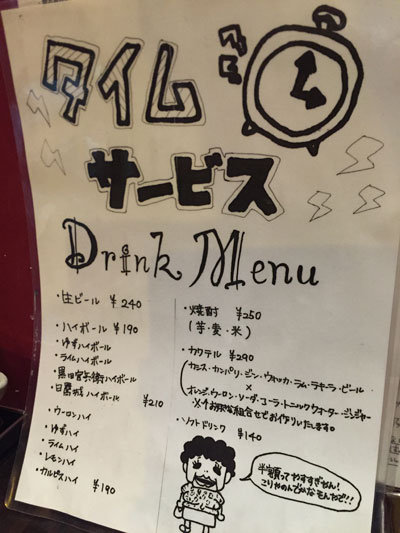 タイム
サービス
Drink Menu
・生ビール ¥240
・ハイボール ¥190
・ゆずハイボール
・ライムハイボール
・黒田官兵衛ハイボール
・日薦城ハイボール ¥210
・ウーロンハイ
・ゆずハイ
・ライムハイ
・レモンハイ
・カルピスハイ ¥190
・焼酎 ¥250
(芋・麦・米)
・カクテル ¥290
(カシス・カンパリ・ジン・ウォッカ・ラム・テキーラ・ビール
×
オレンジ・ウーロン・ソーダ・コーラ・トニックウォーター・ジンジャー
※お好きな組合せでお作りいたします。
・ソフトドリンク ¥140
半額ってやすすぎせん!
こりゃのんでかなそんやで!!